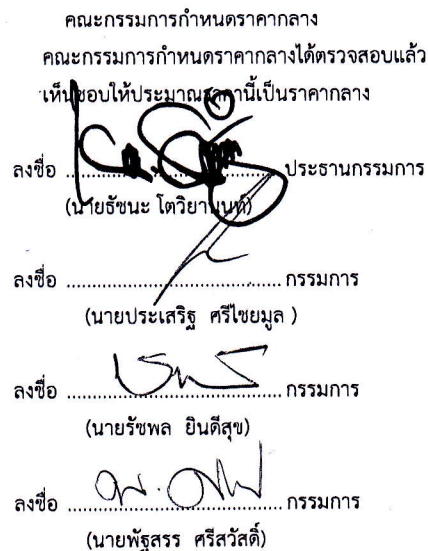 คณะกรรมการกำหนดราคากลาง
คณะกรรมการกำหนดราคากลางได้ตรวจสอบแล้ว
เห็นชอบให้ประมาณราคานี้เป็นราคากลาง
ลงชื่อ ................................ ประธานกรรมการ
(นายธัชนะ โตวิยานนท์)
ลงชื่อ ................................ กรรมการ
(นายประเสริฐ ศรีไชยมูล )
ลงชื่อ ................................ กรรมการ
(นายรัชพล ยินดีสุข)
ลงชื่อ ................................ กรรมการ
(นายพัฐสรร ศรีสวัสดิ์)